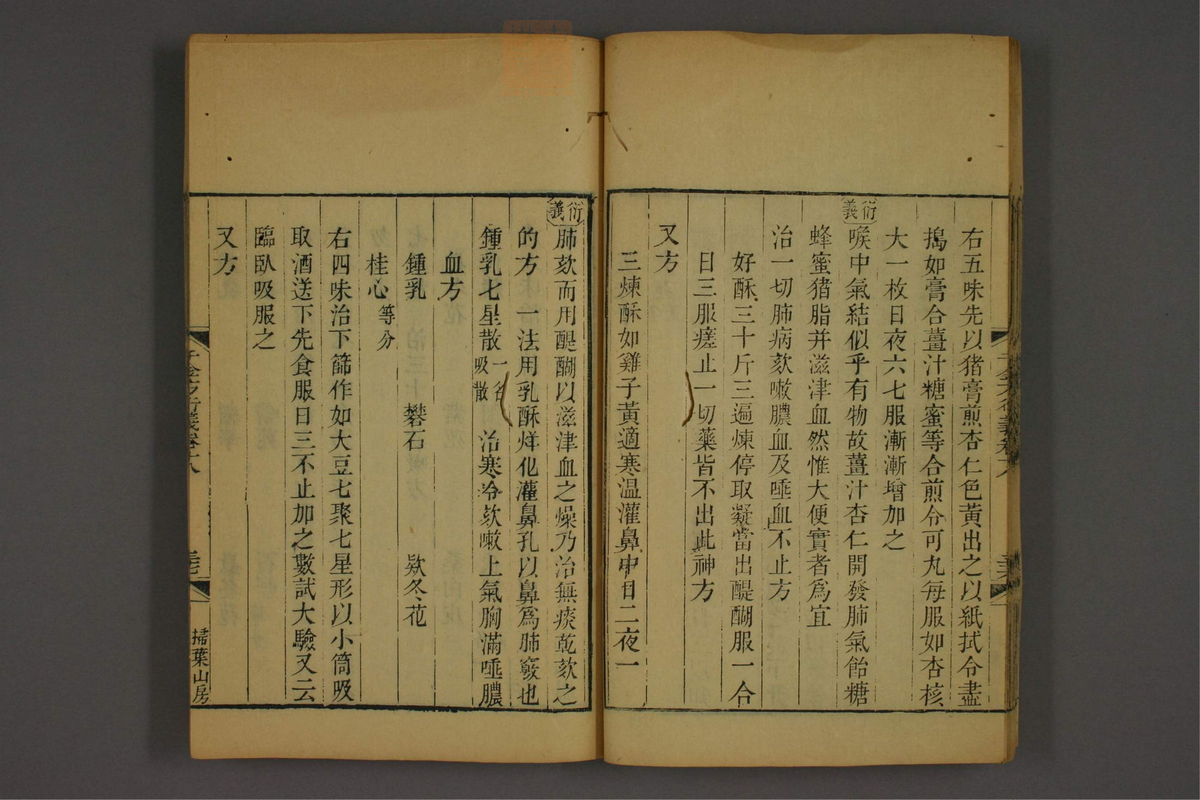 右五味先以猪膏煎杏仁色黃出之以紙拭令盡
搗如膏合薑汁糖蜜等合煎令可丸每服如杏核
大一枚日夜六七服漸漸增加之
衍義
喉中氣結似乎有物故薑汁杏仁開發肺氣飴糖
蜂蜜猪脂并滋津血然惟大便實者爲宜
治一切肺病欬嗽膿血及唾血不止方
好酥三十斤三遍煉停取凝當出醍醐服一合
日三服瘥止一切藥皆不出此神方
又方
三煉酥如雞子黃適寒温灌鼻中日二夜一
衍義
肺欬而用醍醐以滋津血之燥乃治無痰乾欬之
的方一法用乳酥烊化灌鼻孔以鼻爲肺竅也
鍾乳七星散一名吸散 治寒冷欬嗽上氣胸滿唾膿
血方
鍾乳 礬石 欵冬花
桂心等分
右四味治下篩作如大豆七聚七星形以小筒吸
取酒送下先食服日三不止加之數試大驗又云
臨臥吸服之
又方
千金方衍義卷十八
掃葉山房